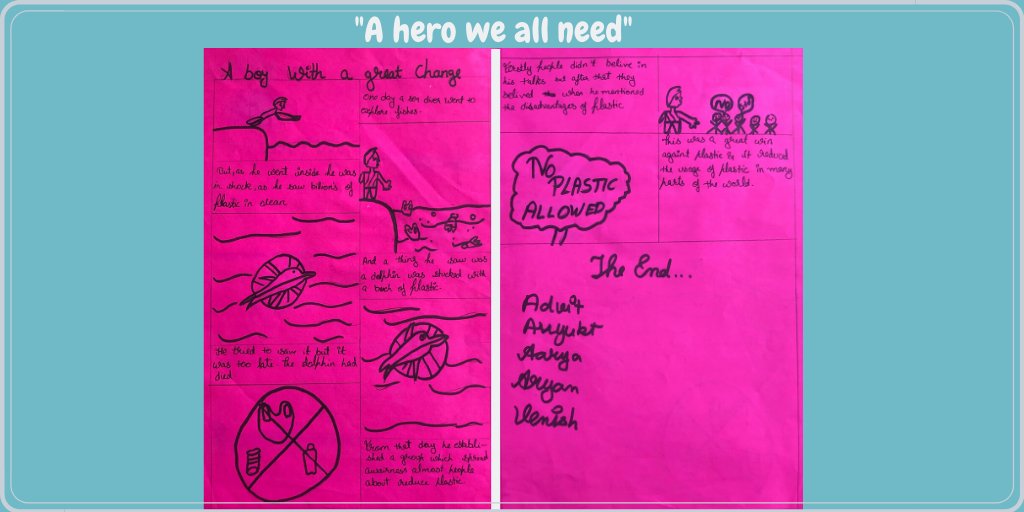 "A hero we all need"
A boy With a great Change
One day a sea diver went to
explore fishes.
But, as he went inside he was
in shock, as he saw billions of
plastic in ocean
And a thing he saw was
a dolphin was stucked with
a bach of plastic.
He tried to saw it but it
was too late the dolphin had
died
From that day he establi-
shed a group which spread
awarness almost people
about reduce plastic.
Firstly people didn't belive in
his talks but after that they
belived when he mentioned
the disadvantages of plastic
This was a great win
againt plastic & it reduced
the usage of plastic in many
parts of the world.
No
PLASTIC
ALLOWED
The End...
Advit
Aaryukt
Aarya
Aryan
Venish